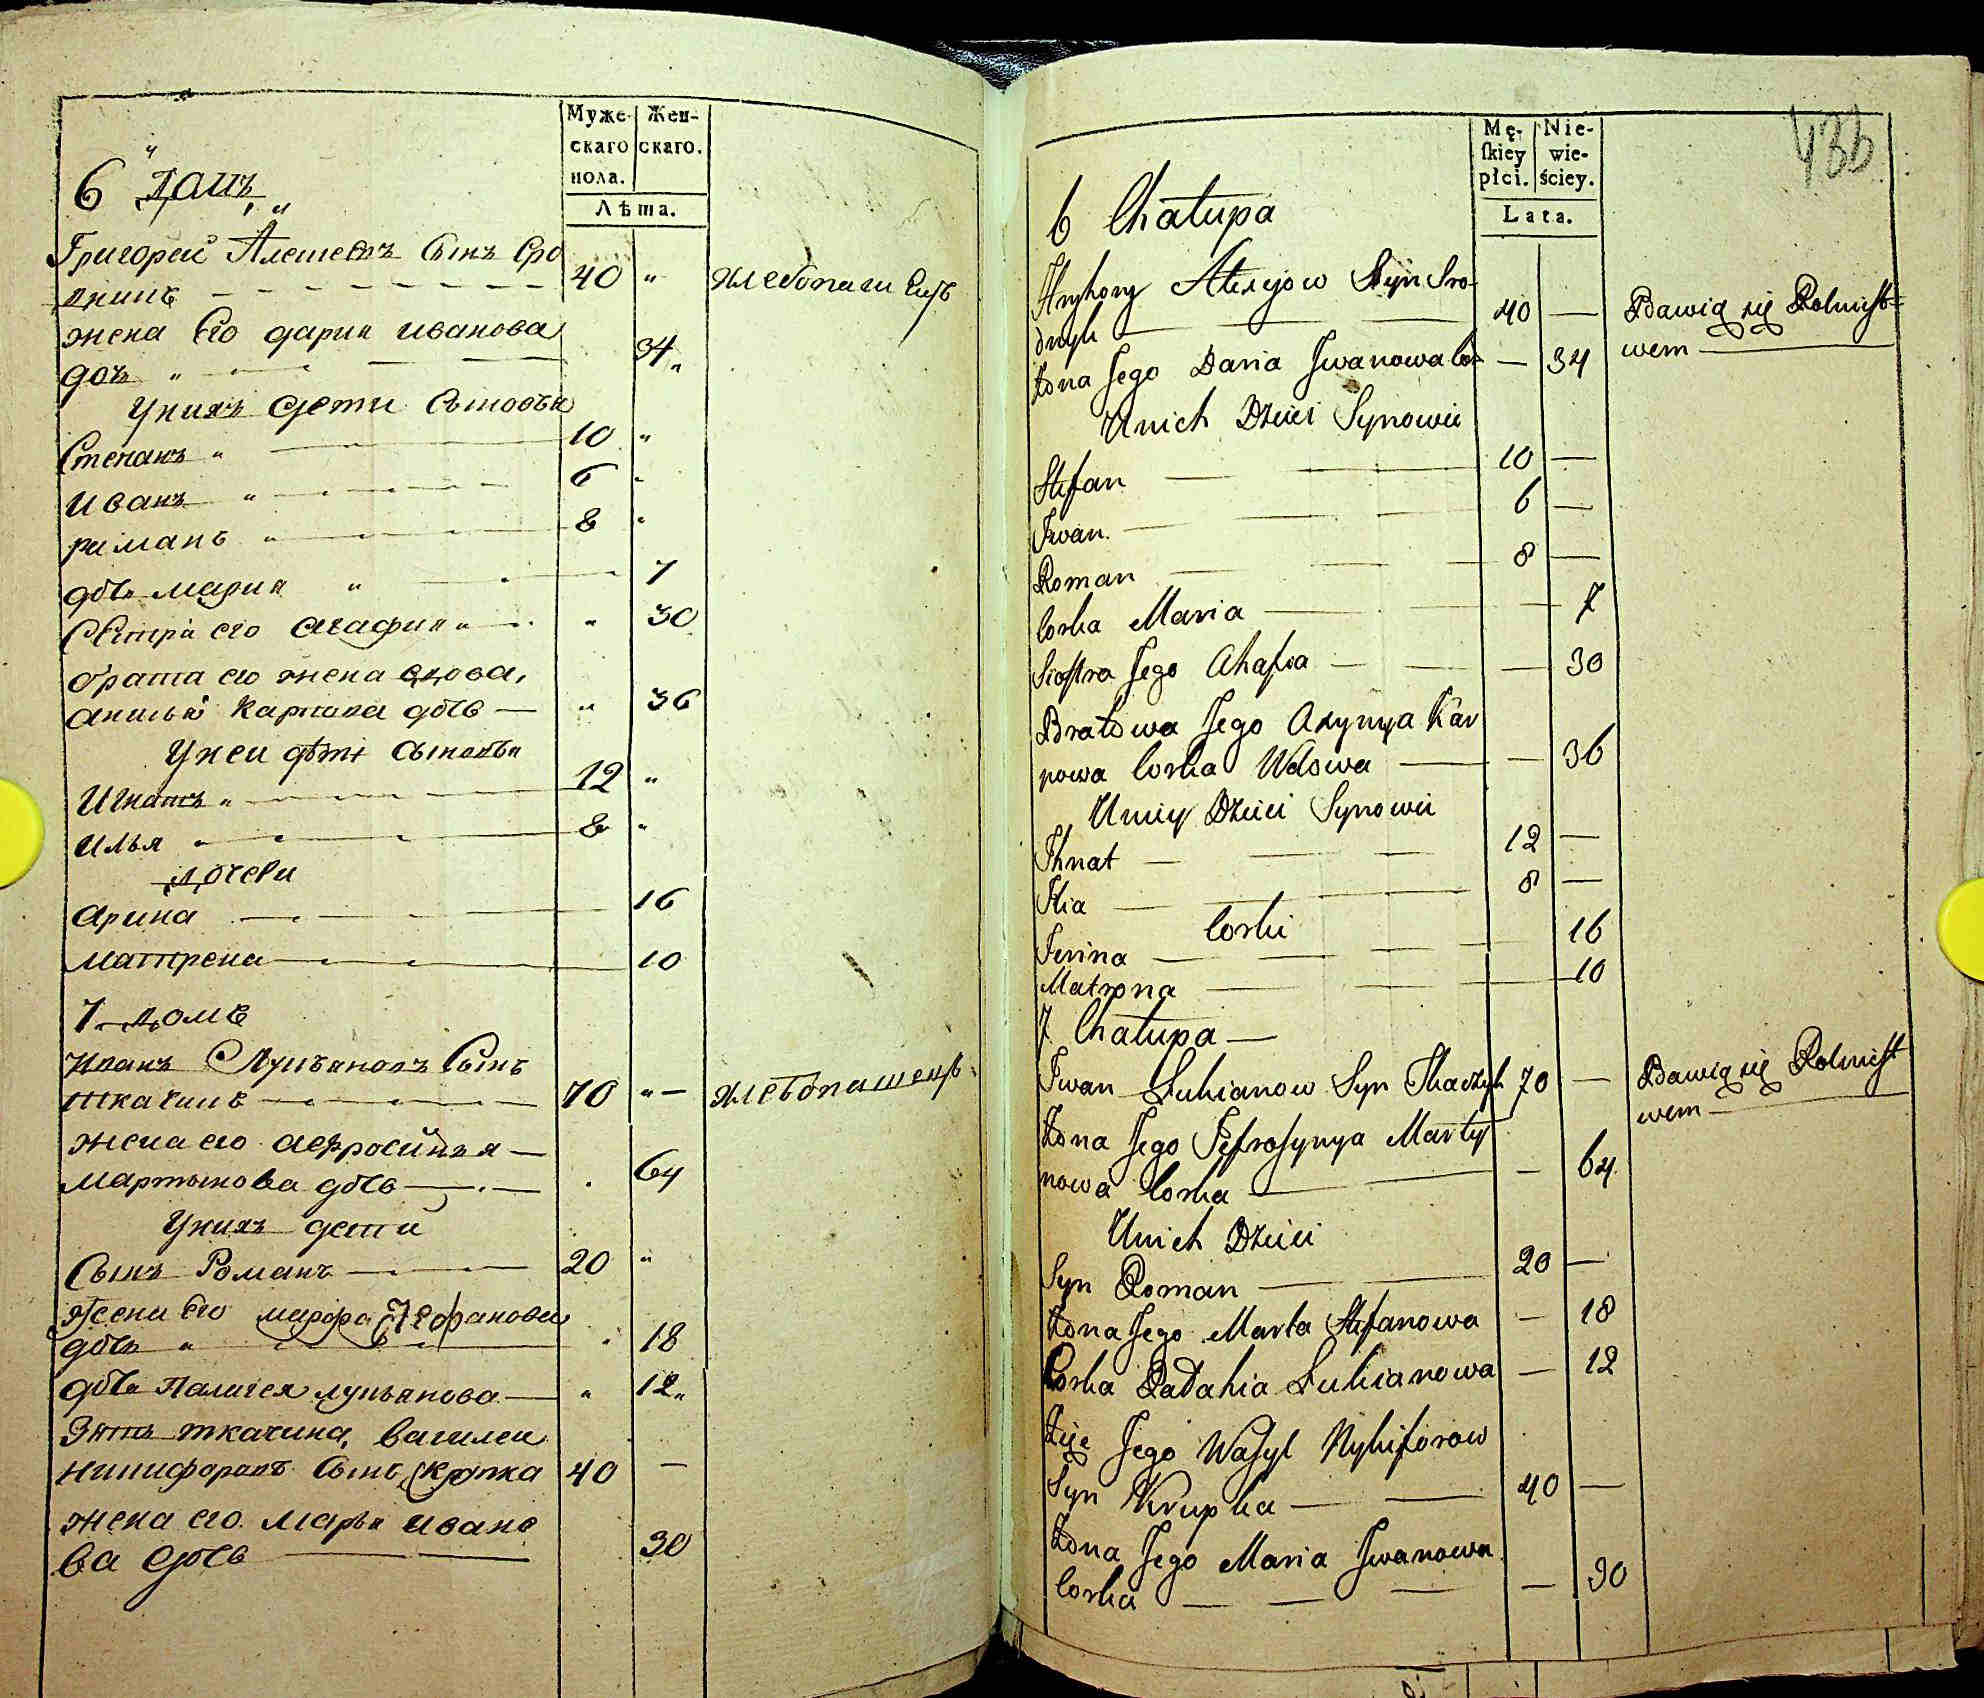 Муже-
скаго
пола.
Жен-
скаго.
Лѣта.
6 домъ
Григорей Алешевъ сынъ Сро
днинъ 40 " хлебопашецъ
жена Его дария иванова
дочь " 34
У нихъ дети сыновья
Степанъ " 10 "
Иванъ " 6 "
раманъ " 8 "
дочь мария " 7
Сестра его агафия " " 30
брата его жена вдова,
анисья Карпова дочь " 36
У неи дѣти сыновья
Игнатъ " 12 "
Илья 8 "
дочери
Арина 16
матрена 10
7 домъ
Иванъ Лукъяновъ Сынъ
ткачинъ 70 " хлебопашецъ
жена его аефросинья
мартынова дочь 64
У нихъ дети
Сынъ Романъ 20 "
жена Его марфа Стефанова
дочь " 18
дочь Палагея лукъянова " 12
Зять ткачина, василеи
никифоровъ сынъ крупка 40
жена его марья ивано
ва дочь 30
436
Mę-
ſkiey
płci.
Nie-
wie-
ściey.
Lata.
6 Chałupa
Hryhory Alexjow Syn Sro-
dnyk 40 — Bawią się Rolnictwem
Żona Jego Daria Jwanowa Cor — 34
Unich Dzieci Synowie
Stefan 10 —
Jwan 6 —
Roman 8 —
Corka Maria 7
Siostra Jego Ahafia — 30
Bratowa Jego Axynya Kar
powa Corka Wdowa — 36
Uniey Dzieci Synowie
Jhnat 12 —
Ilia 8 —
Corki
Jerina 16
Matrona 10
7 Chałupa
Jwan Lukianow Syn Tkaczyk 70 — Bawią się Rolnict
wem
Żona Jego Jefrosynya Marty
nowa Corka — 64
Unich Dzieci
Syn Roman 20 —
Żona Jego Marta Stefanowa — 18
Corka Pałahia Lukianowa — 12
Zięć Jego Wasyl Nykiforow
Syn Krupka 40 —
Żona Jego Maria Jwanowa
Corka — 30